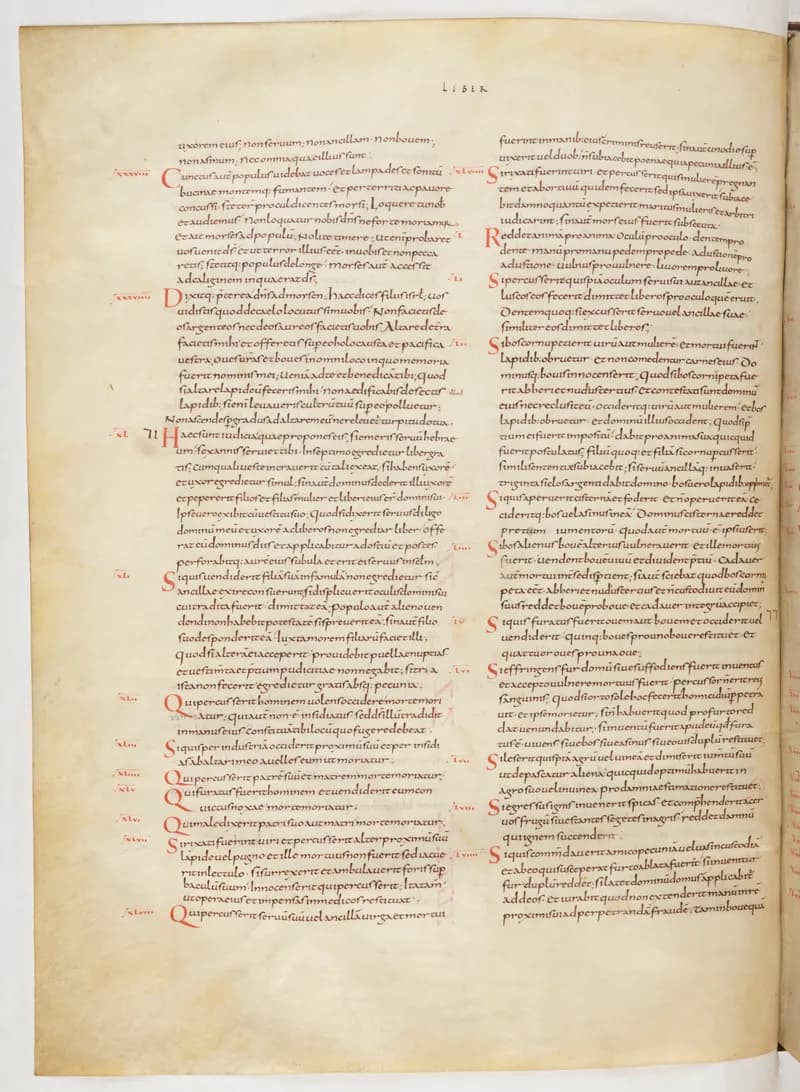 LIBER
uxorem eius; non seruum; non ancillam; non bouem;
non asinum; nec omnia quae illius sunt.
xxxviii Cunctus aut populus uidebat uoces et lampades et sonitū
bucinae montemq; fumantem. et perterriti ac pauore
concussi. steter procul dicentes morsi; Loquere tu nob
et audiemus. Non loquatur nobis dns ne forte moriamur.
Et ait morses ad populū; Nolite timere; Ut enī probaret
uos uenit ds. et ut terror illius eēt in uobis et non pecca
retis; stetitq; populus de longe. morses aut accessit
ad caliginem in qua erat ds.
xxxviiii Dixitq; ptrea dns ad morsen; haec dices filiis isrl; uos
uidistis quod de caelo locutus sim uobis. Non facietis de
os argenteos nec deos aureos facietis uobis. Altare de terra
facietis mihi et offeretis sup eo holocausta et pacifica
uestra; oues uras et boues in omni loco in quo memoria
fuerit nominis mei; Ueniā ad te et benedicā tibi; Quod
si altare lapideū feceris mihi non aedificabis de sectis
lapidib; si enī leuaueris cultrū tuū sup eo polluetur;
Non ascendes p gradus ad altare meū ne reuelet turpitudo tua.
xl Haec sunt iudicia quae propones eis; si emeris seruū hebrae
um. sex annis seruiet tibi. In septimo egredietur liber gra
tis; cum quali ueste intrauerit cū tali exeat; si habens uxorē
et uxor egredietur simul; sin aut dominus dederit illi uxorē
et pepererit filios et filias mulier et liberi eius er domini sui.
Ipse uero exibit cū uestitu suo; Quod si dixerit seruus diligo
dominū meū et uxorē ac liberos non egrediar liber. offe
rat eū dominus diis et applicabitur ad ostiū et postes.
perforabitq; aurē eius subula et erit ei seruus in sclm.
xli Si quis uendiderit filiā suā in famulā non egredietur sic
ancillae exire consuerunt; si displicuerit oculis domini sui
cui tradita fuerit. dimittat eā; populo aut alieno uen
dendi non habebit potestatē si spreuerit eā; sin aut filio
suo desponderit eā. Iuxta morem filiarū faciet illi.
Quod si alterā ei acceperit. prouidebit puellae nuptias
et uestimta et ptium pudicitiae non negabit; si tria
ista non fecerit egredietur gratis absq; pecunia.
xlii Qui percusserit hominem uolens occidere morte mori
atur; qui aut non ē insidiatus sed ds illū tradidit
in manus eius. constituā tibi locū quo fugere debeat.
xliii Si quis per industriā occiderit proximū suū et per insidi
as ab altari meo auelles eum ut moriatur.
xliiii Qui percusserit patrē suū et matrem morte moriatur;
xlv Qui furatus fuerit hominem et uendiderit eum con
uictus noxae morte moriatur.
xlvi Qui maledixerit patri suo aut matri morte moriatur;
xlvii Si rixati fuerint uiri et percusserit alter proximū suū
lapide uel pugno et ille mortuus non fuerit sed iacue
rit in lectulo. si surrexerit et ambulauerit foris sup
baculū suum. Innocens erit qui percusserit; Ita tam
ut operas eius et impensas in medicos restituat.
xlviii Qui percusserit seruū suū uel ancillā uirga et mortui
fuerint in manib; eius criminis reus erit. sin aut uno die sup
uixerit uel duob; n subiacebit poenae quia pecunia illius ē.
xlviiii Si rixati fuerint uiri et percusserit quis mulierē pregnan
tem et abortiuū quidem fecerit sed ipsa uixerit. subiace
bit damno quantū expetierit maritus mulieris et arbitri
iudicarint; sin aut mors eius fuerit subsecuta.
l Reddet animā pro anima. Oculū pro oculo. dentem pro
dente. manū pro manu pedem pro pede. Adustionē pro
adustione. Uulnus pro uulnere. liuorem pro liuore.
li Si percusserit quispiā oculum serui sui aut ancillae. et
luscos eos fecerit dimittet liberos pro oculo quē eruit.
Dentem quoq; si excusserit seruo uel ancillae suae.
similiter eos dimittet liberos.
lii Si bos cornu petierit uirū aut mulierē. et mortui fuerint
lapidib; obruetur. et non comedentur carnes eius. Do
minusq; bouis innocens erit. Quod si bos cornipeta fue
rit ab heri et nudustertius. et contestati sunt dominū
eius nec reclusit eū. occideritq; uirū aut mulierem. et bos
lapidib; obruetur. et dominū illius occident; Quod si p
tium ei fuerit impositū. dabit pro anima sua quicquid
fuerit postulatus; filiū quoq; et filiā si cornu percusserit
simili sententiae subiacebit; si seruū ancillāq; inuaserit.
triginta siclos argenti dabit domino. bos uero lapidib; opprimet;
liii Si quis aperuerit cisternā et foderit. et n operuerit eā. ce
cideritq; bos uel asinus in eā. Dominus cisternae reddet
pretium iumentorū. quod aut mortuū ē ipsius erit;
liiii Si bos alienus bouē alterius uulnerauerit. et ille mortuus
fuerit. uendent bouē uiuū et diuident ptiū. Cadauer
aut mortui int se dispertient; sin aut sciebat quod bos corni
peta eēt. ab heri et nudustertius et n custodiuit eū domin
suus reddet bouē pro boue. et cadauer integrū accipiet;
lv Si quis furatus fuerit ouem aut bouem et occiderit uel
uendiderit. quinq; boues pro uno boue restituet. et
quattuor oues pro una oue;
Si effringens fur domū siue suffodiens fuerit inuentus
et accepto uulnere mortuus fuerit. percussor n erit reus
sanguinis. Quod si orto sole hoc fecerit homicidiū ppetra
uit. et ipse morietur; si n habuerit quod pro furto red
dat uenundabitur. si inuentū fuerit apud eū qd fura
tus ē. uiuens siue bos siue asinus siue ouis duplū restituet;
lvi Si leserit quispiā agrū uel uineā et dimiserit iumtū suū
ut depascatur aliena. quicquid optimū habuerit in
agro suo uel in uinea. pro damni aestimatione restituet;
lvii Si egressus ignis inuenerit spicas. et comphenderit acer
uos frugū siue stantes segetes in agris. reddet damnū
qui ignem succenderit.
lviii Si quis commdauerit amico pecuniā uel uas in custodiā
et ab eo qui susceperat furto ablata fuerit. si inuenitur
fur duplū reddet; si latet dominus domus applicabit
ad deos. et iurabit quod non extenderit manū in re
proximi sui ad perpetrandā fraudē; tam in boue quā